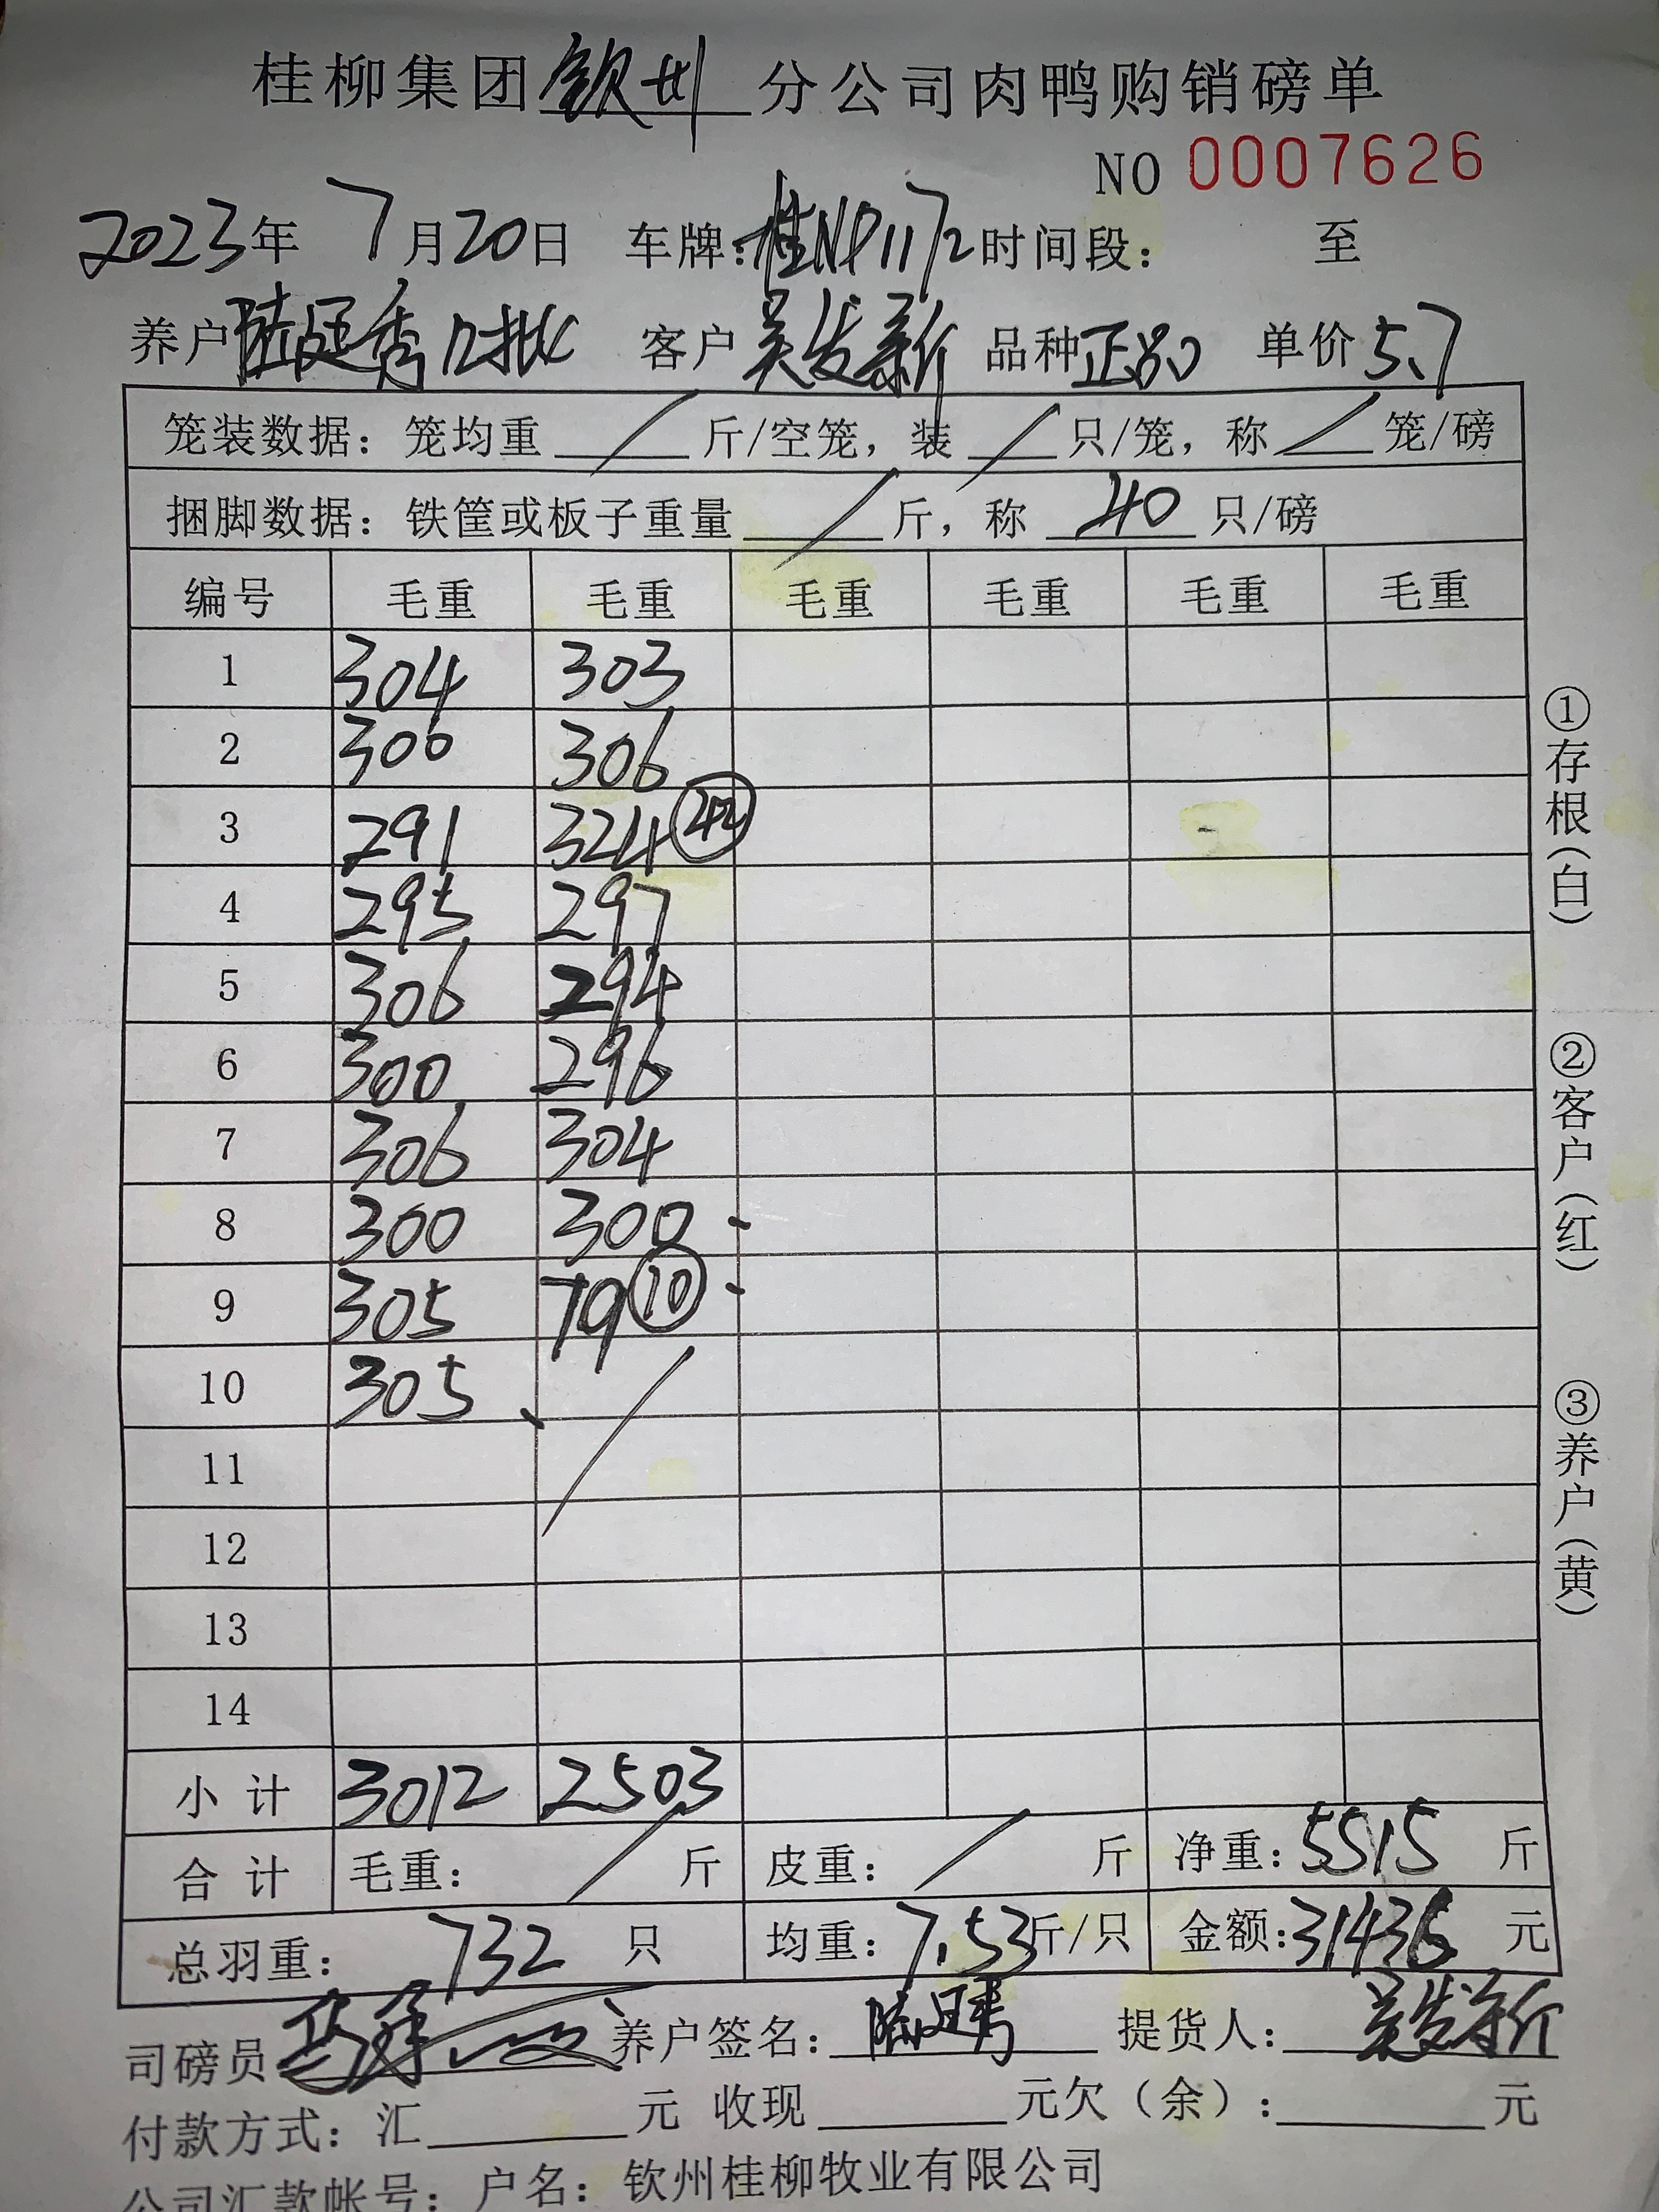 桂柳集团钦州分公司肉鸭购销磅单
NO 0007626
2023年 7月20日 车牌:桂NP1172时间段: 至
养户陆廷秀几批 客户吴发新 品种正品 单价5.7
笼装数据: 笼均重 / 斤/空笼, 装 / 只/笼, 称 / 笼/磅
捆脚数据: 铁筐或板子重量 / 斤, 称 40 只/磅
编号 毛重 毛重 毛重 毛重 毛重 毛重
1 304 303
2 300 306
3 291 324 42
4 295 297
5 306 294
6 300 296
7 306 304
8 300 300
9 305 79 10
10 305
11
12
13
14
小计 3012 2503
合计 毛重: / 斤 皮重: / 斤 净重: 5515 斤
总羽重: 732 只 均重: 7.53斤/只 金额:31436 元
司磅员 养户签名: 提货人: 吴发新
付款方式: 汇 元 收现 元欠(余): 元
公司汇款帐号: 户名: 钦州桂柳牧业有限公司
①存根(白)
②客户(红)
③养户(黄)